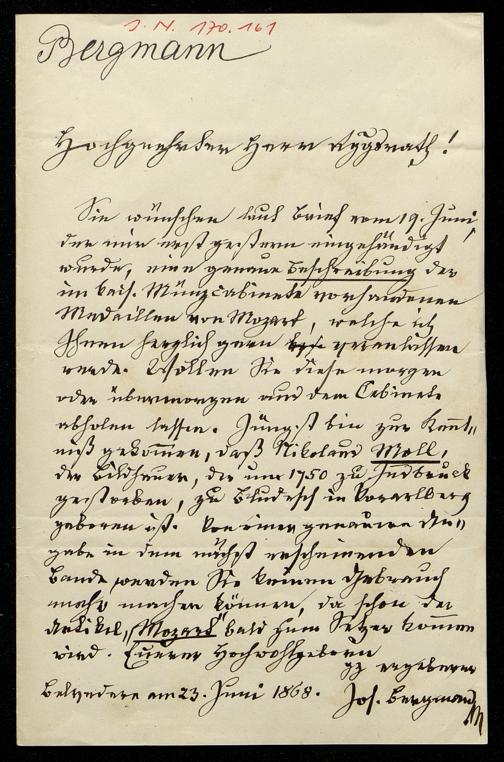 J. N. 170.161
Bergmann
Hochgeehrter Herr Rggsrath!
Sie wünschen laut Brief vom 19. Juni,
der mir erst gestern eingehändigt
wurde, eine genaue Beschreibung der
im kais. Münzcabinete vorhandenen
Medaillen von Mozart, welche ich
Ihnen herzlich gern veranlassen
werde. Wollen Sie diese morgen
oder übermorgen aus dem Cabinete
abholen lassen. Jüngst bin zur Kennt„
niß gekommen, daß Nikolaus Moll,
der Bildhauer, der um 1750 zu Insbruck
gestorben, zu Bludesch in Vorarlberg
geboren ist. Von einer genauern An„
gabe in dem nächst erscheinenden
Bande werden Sie keinen Gebrauch
mehr machen können, da schon der
Artikel „Mozart" bald zum Setzer kommen
wird. Euerer Hochwohlgeboren
gz ergebener
Belvedere am 23. Juni 1868. Jos. Bergmann